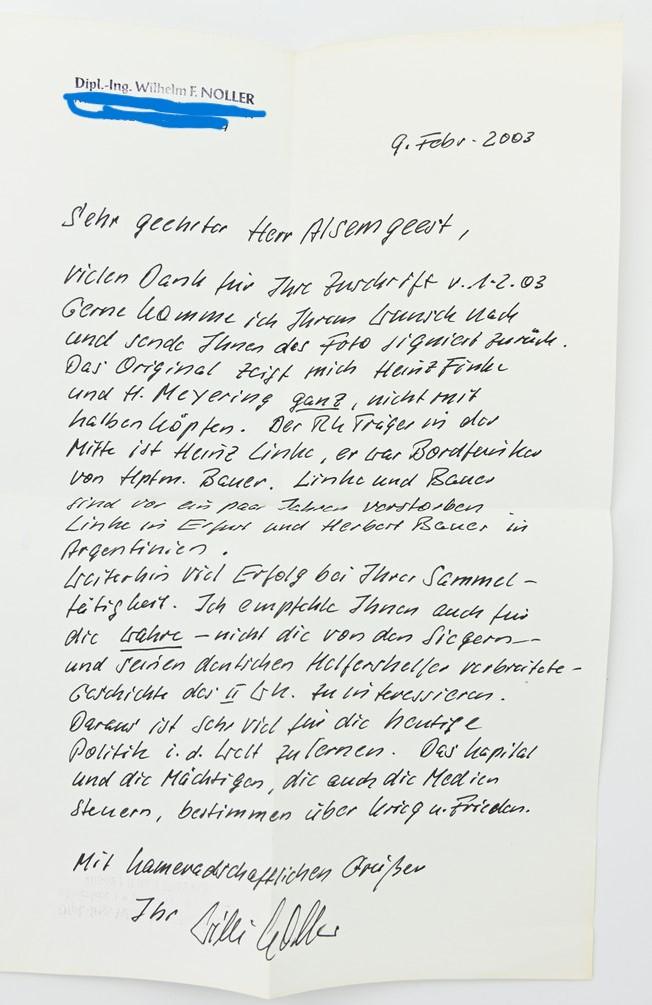 Dipl.-Ing. Wilhelm F. NOLLER
9. Febr. 2003
Sehr geehrter Herr Alsemgeest,
vielen Dank für Ihre Zuschrift v. 1.2.03
Gerne komme ich Ihrem Wunsch nach
und sende Ihnen das Foto signiert zurück.
Das Original zeigt mich Heinz Finke
und H. Meyering ganz, nicht mit
halben Köpfen. Der Rk Träger in der
Mitte ist Heinz Linke, er war Bordfunker
von Hptm. Bauer. Linke und Bauer
sind vor ein paar Jahren verstorben
Linke in Erfurt und Herbert Bauer in
Argentinien.
Weiterhin viel Erfolg bei Ihrer Sammel-
tätigkeit. Ich empfehle Ihnen auch für
die wahre – nicht die von den Siegern –
und seinen deutschen Helfershelfer verbreitete –
Geschichte des II Wk. zu interessieren.
Daraus ist sehr viel für die heutige
Politik i. d. Welt zu lernen. Das Kapital
und die Mächtigen, die auch die Medien
steuern, bestimmen über Krieg u. Frieden.
Mit kameradschaftlichen Grüßen
Ihr Willi Noller